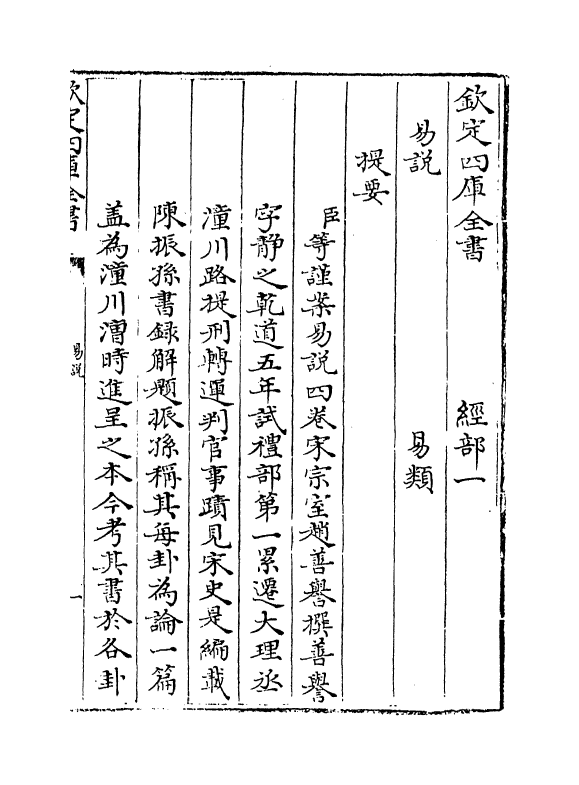 欽定四庫全書　經部一
易説　易類
提要
臣等謹案易説四卷宋宗室趙善譽撰善譽
字静之乾道五年試禮部第一累遷大理丞
潼川路提刑轉運判官事蹟見宋史是編載
陳振孫書録解題振孫稱其每卦為論一篇
盖為潼川漕時進呈之本今考其書於各卦
欽定四庫全書　易説　一